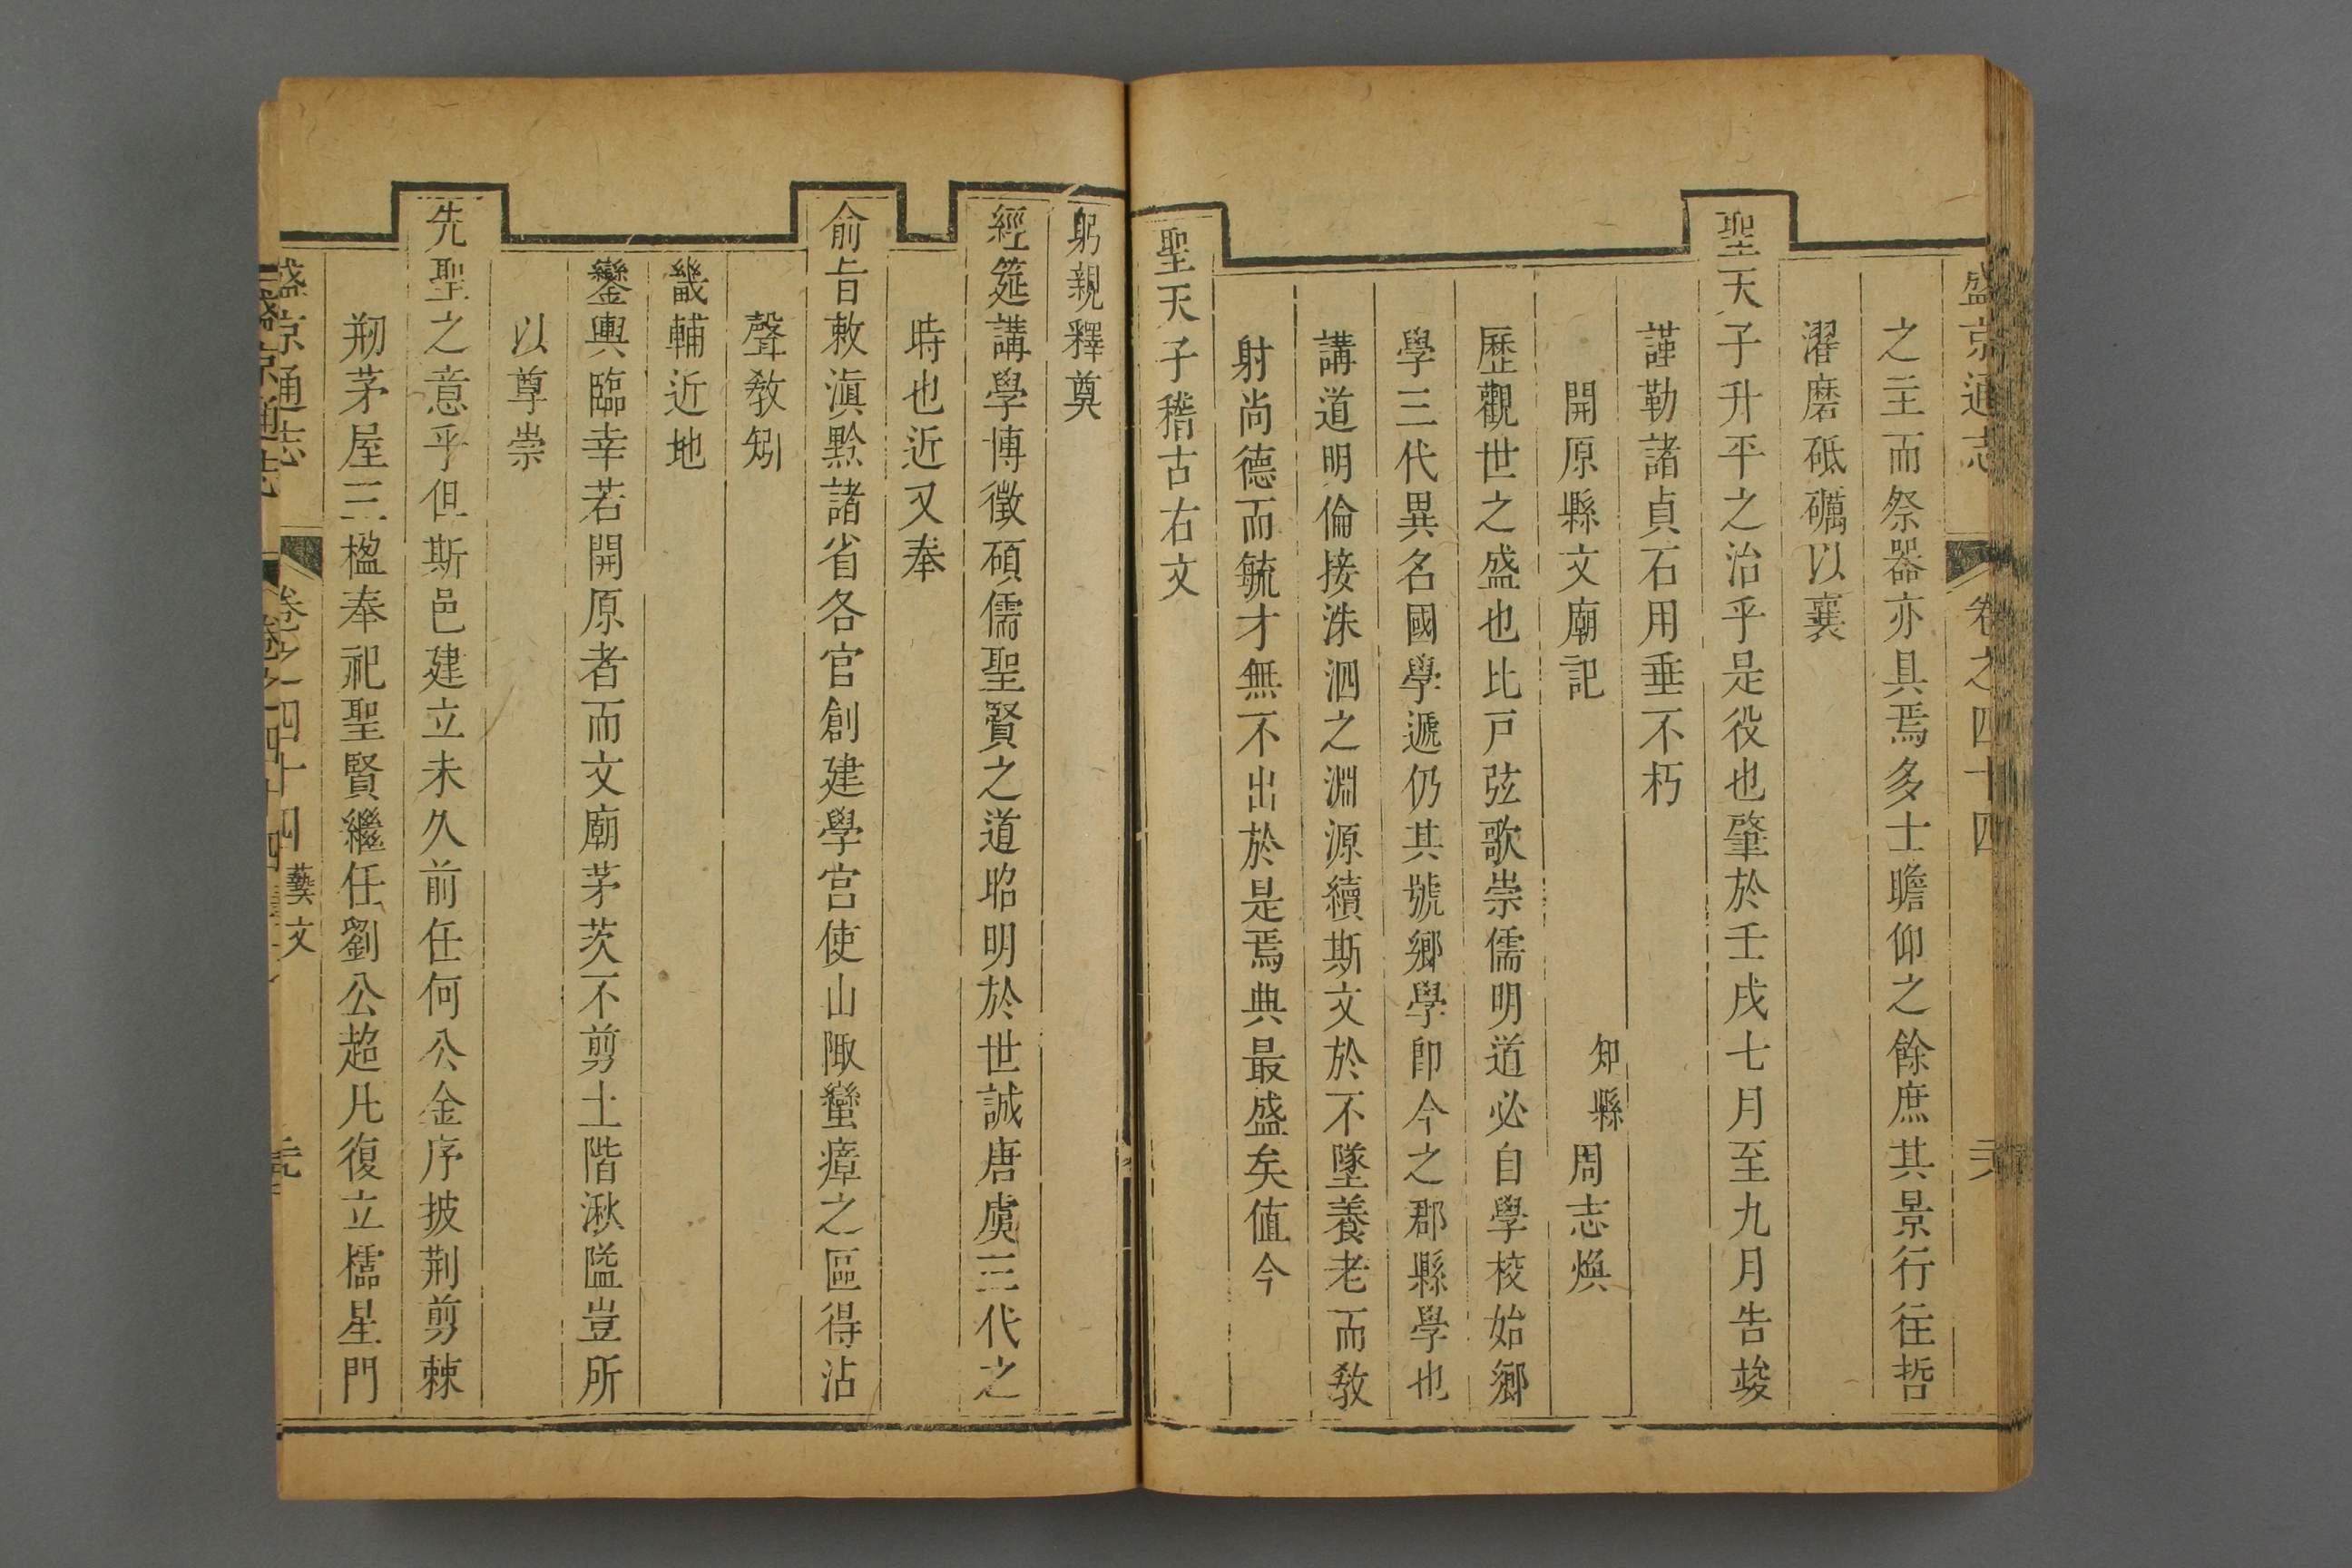 盛京通志 卷之四十四
之主而祭器亦具焉多士瞻仰之餘庶其景行往哲
濯磨砥礪以襄
聖天子升平之治乎是役也肇於壬戌七月至九月告竣
謹勒諸貞石用垂不朽
開原縣文廟記 知縣周志煥
歷觀世之盛也比戸弦歌崇儒明道必自學校始鄉
學三代異名國學遞仍其號鄉學卽今之郡縣學也
講道明倫接洙泗之淵源續斯文於不墜養老而敎
射尚德而毓才無不出於是焉典最盛矣值今
聖天子稽古右文
躬親釋奠
經筵講學博徵碩儒聖賢之道昭明於世誠唐虞三代之
時也近又奉
俞旨敕滇黔諸省各官創建學宫使山陬蠻瘴之區得沾
聲敎矧
畿輔近地
鑾輿臨幸若開原者而文廟茅茨不剪土階湫隘豈所
以尊崇
先聖之意乎但斯邑建立未久前任何公金序披荆剪棘
剏茅屋三楹奉祀聖賢繼任劉公超凡復立櫺星門
盛京通志 卷之四十四 藝文